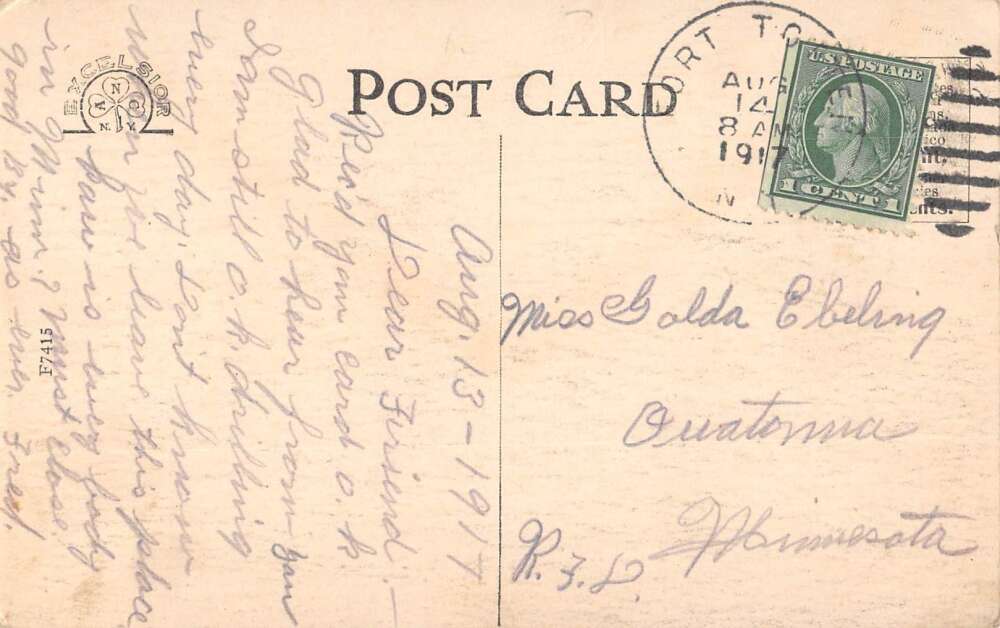 EXCELSIOR
A N C
N.Y.
POST CARD
ORT TO
AUG
14
8 AM
1917
N
U.S. POSTAGE
1 CENT 1
nts.
F7415
Aug. 13-1917
Dear Friend:-
Rec'd your card o.k
Glad to hear from you
I am still o.k. drilling
every day. Dont know
when we leave this place
how is every body
in Minn? Must close
Good by. as ever Fred.
Miss Golda Ebeling
Owatonna
Minnesota
R.F.D